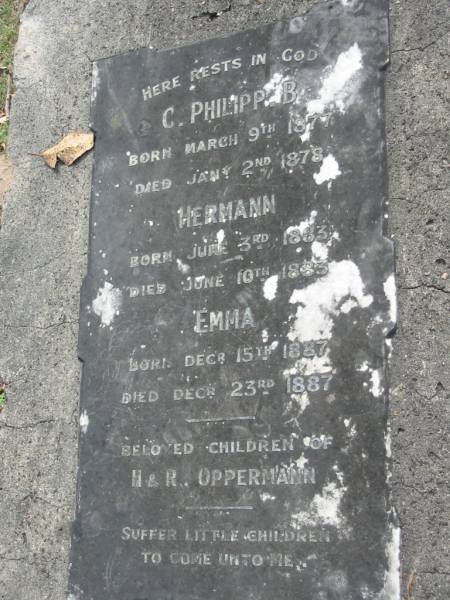 HERE RESTS IN GOD
C. PHILIPP B.
BORN MARCH 9TH 1877
DIED JANY 2ND 1878
HERMANN
BORN JUNE 3RD 1883
DIED JUNE 10TH 1883
EMMA
BORN DECR 15TH 1887
DIED DECR 23RD 1887
BELOVED CHILDREN OF
H & R. OPPERMANN
SUFFER LITTLE CHILDREN
TO COME UNTO ME.